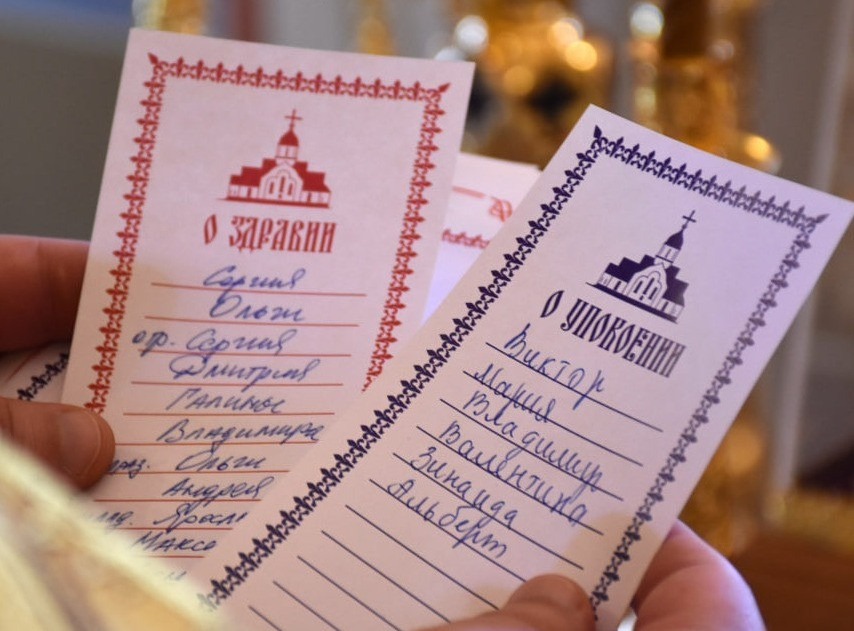 О ЗДРАВИИ
Сергия
Ольги
Сергия
Дмитрия
Галины
Владимира
Ольги
Андрея
О УПОКОЕНИИ
Виктор
Мария
Владимир
Валентина
Зинаида
Альберт